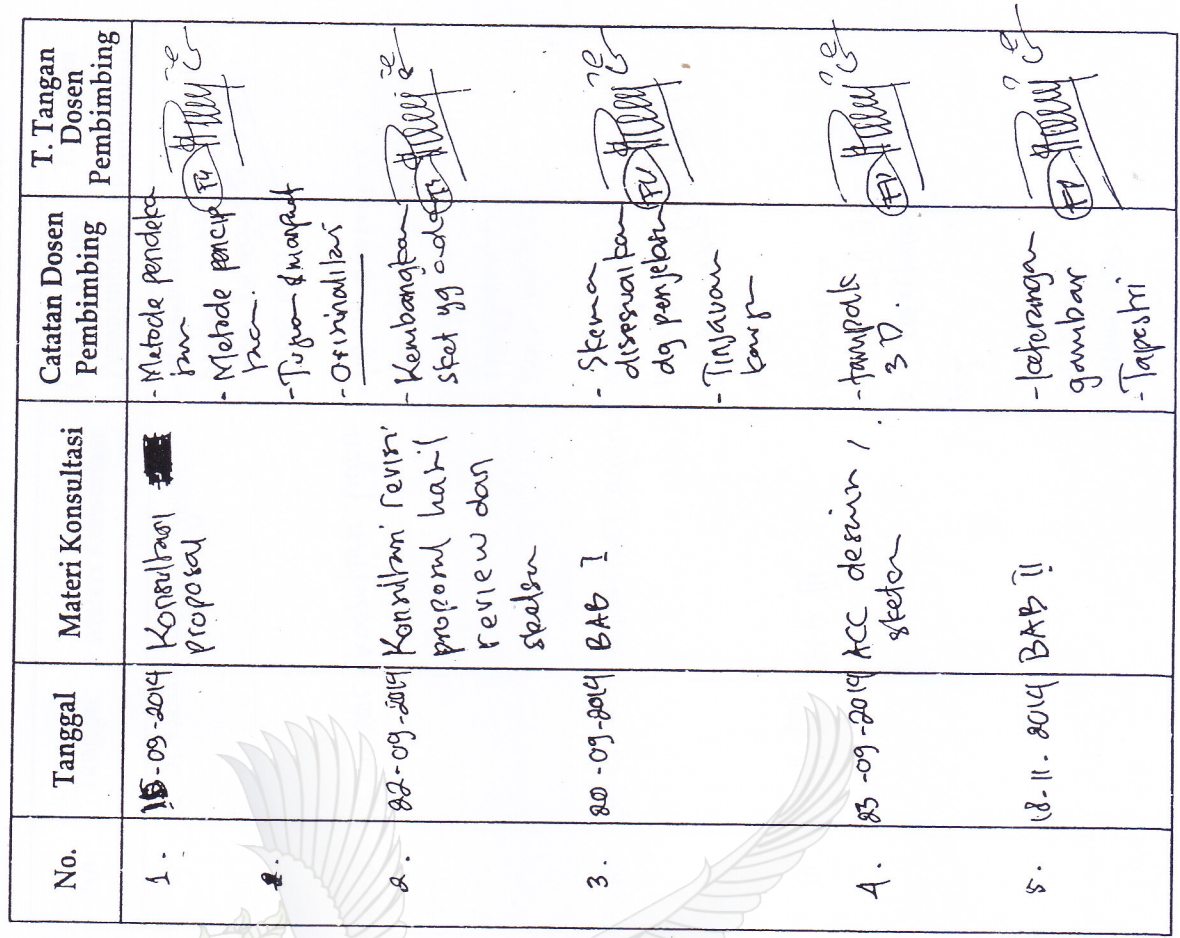 No.
Tanggal
Materi Konsultasi
Catatan Dosen
Pembimbing
T. Tangan
Dosen
Pembimbing
1.
15-09-2014
Konsultasi
proposal
- Metode pendeka
tan
- Metode pencip
taan.
- Tujuan & manfaat
- Orisinalitas
2.
22-09-2014
Konsultasi revisi
proposal hasil
review dan
sketsa
- Kembangkan
sket yg ada
3.
20-09-2014
BAB I
- Skema
disesuaikan
dg penjelasan
- Tinjauan
karya
4.
23-09-2014
ACC desain /
sketsa
- tampak
3 D.
5.
18-11-2014
BAB II
- keterangan
gambar
- Tapestri